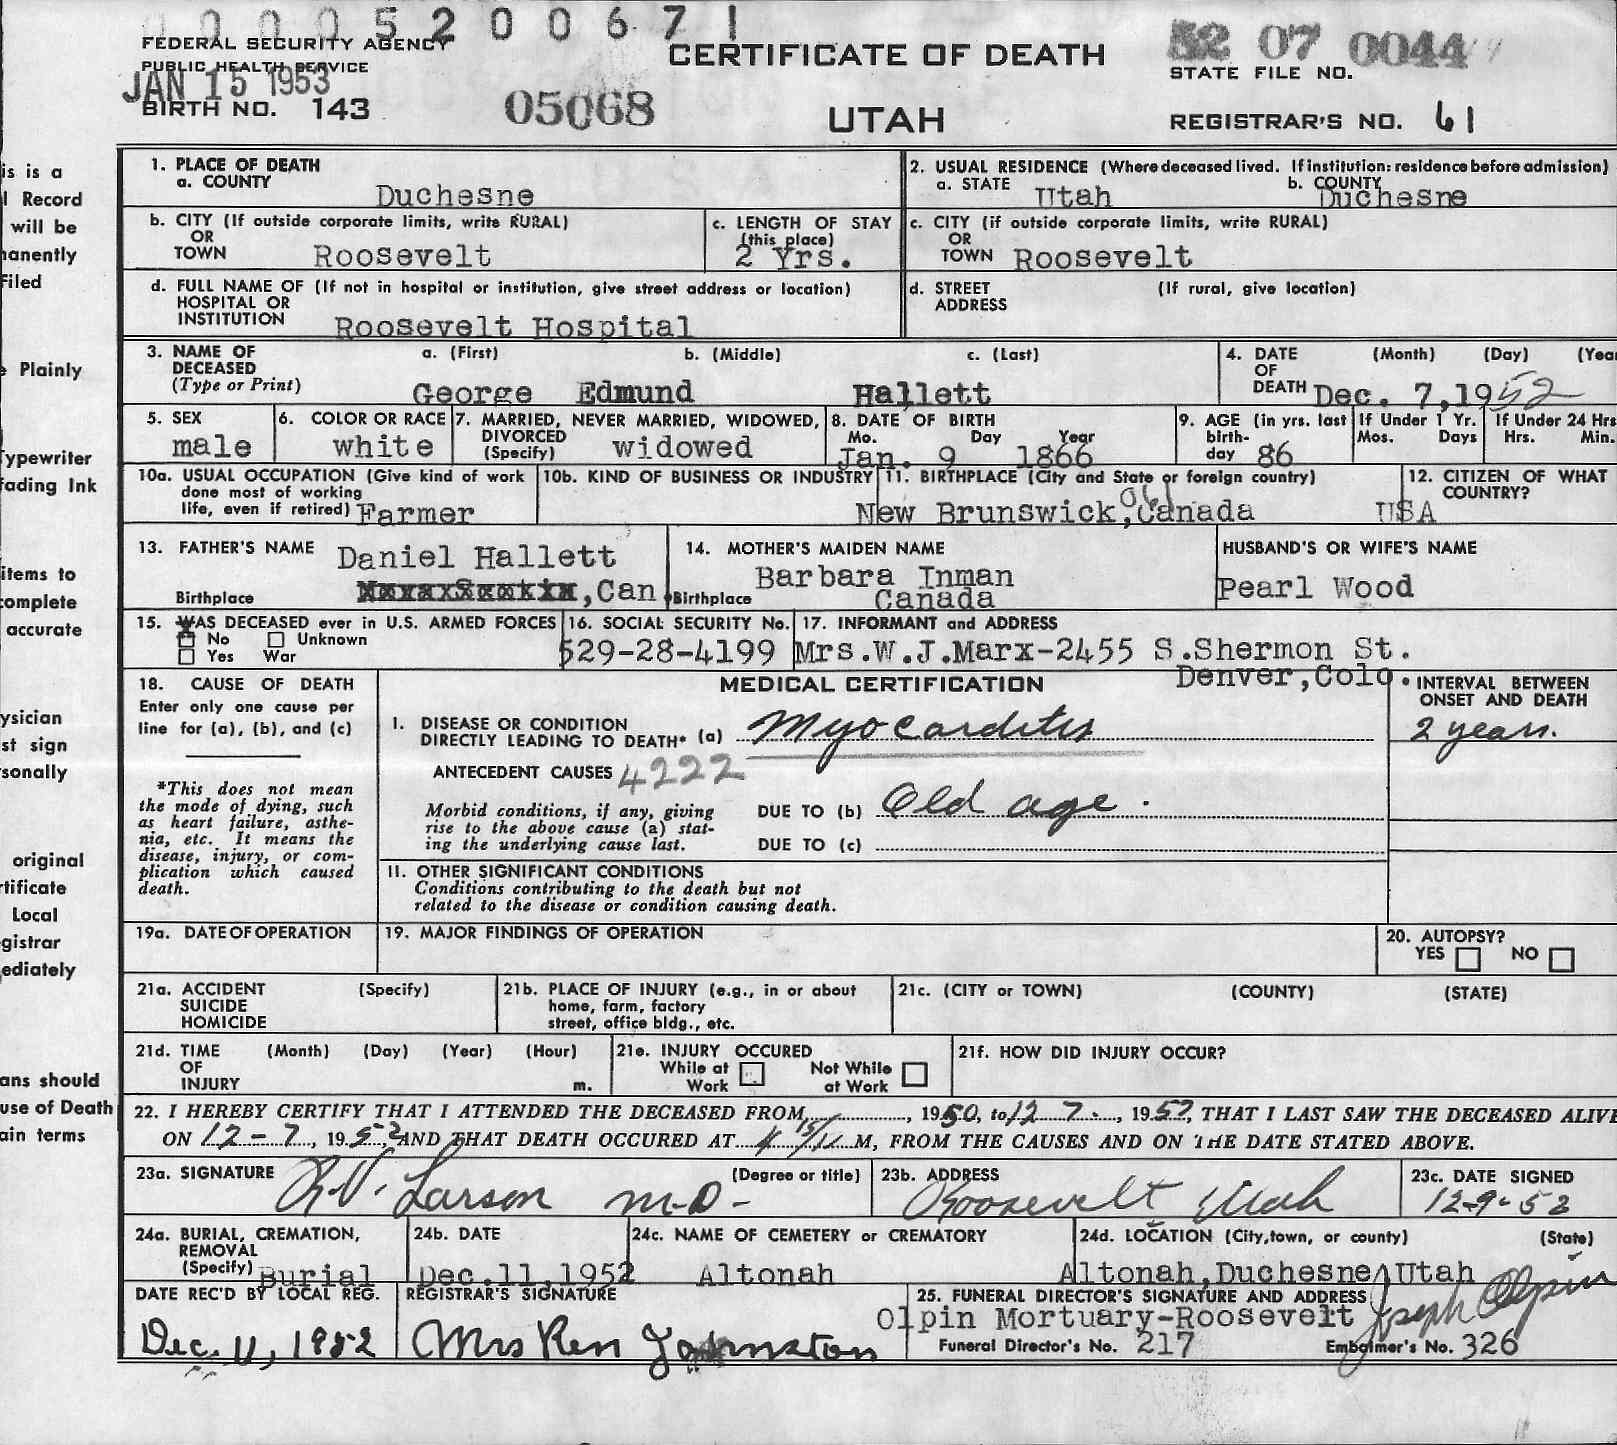 0 0 0 0 5 2 0 0 6 7 1
FEDERAL SECURITY AGENCY
PUBLIC HEALTH SERVICE
JAN 15 1953
BIRTH NO. 143
05068
CERTIFICATE OF DEATH
UTAH
52 07 0044
STATE FILE NO.
REGISTRAR'S NO. 61
is is a
l Record
will be
manently
Filed
Plainly
ypewriter
ading Ink
items to
omplete
accurate
ysician
st sign
sonally
original
rtificate
Local
gistrar
ediately
ans should
use of Death
ain terms
1. PLACE OF DEATH
a. COUNTY Duchesne
2. USUAL RESIDENCE (Where deceased lived. If institution: residence before admission)
a. STATE Utah b. COUNTY Duchesne
b. CITY (If outside corporate limits, write RURAL)
OR
TOWN Roosevelt
c. LENGTH OF STAY
(this place)
2 Yrs.
c. CITY (if outside corporate limits, write RURAL)
OR
TOWN Roosevelt
d. FULL NAME OF (If not in hospital or institution, give street address or location)
HOSPITAL OR
INSTITUTION Roosevelt Hospital
d. STREET (If rural, give location)
ADDRESS
3. NAME OF a. (First) b. (Middle) c. (Last)
DECEASED
(Type or Print) George Edmund Hallett
4. DATE (Month) (Day) (Yea
OF
DEATH Dec. 7,1952
5. SEX
male
6. COLOR OR RACE
white
7. MARRIED, NEVER MARRIED, WIDOWED,
DIVORCED
(Specify) widowed
8. DATE OF BIRTH
Mo. Day Year
Jan. 9 1866
9. AGE (in yrs. last
birth-
day 86
If Under 1 Yr.
Mos. Days
If Under 24 Hrs
Hrs. Min.
10a. USUAL OCCUPATION (Give kind of work
done most of working
life, even if retired) Farmer
10b. KIND OF BUSINESS OR INDUSTRY
11. BIRTHPLACE (City and State or foreign country)
New Brunswick, Canada
12. CITIZEN OF WHAT
COUNTRY?
USA
13. FATHER'S NAME Daniel Hallett
Birthplace ,Can.
14. MOTHER'S MAIDEN NAME
Barbara Inman
Birthplace Canada
HUSBAND'S OR WIFE'S NAME
Pearl Wood
15. WAS DECEASED ever in U.S. ARMED FORCES
No Unknown
Yes War
16. SOCIAL SECURITY No.
529-28-4199
17. INFORMANT and ADDRESS
Mrs.W.J.Marx-2455 S.Shermon St.
Denver,Colo.
18. CAUSE OF DEATH
Enter only one cause per
line for (a), (b), and (c)
*This does not mean
the mode of dying, such
as heart failure, asthe-
nia, etc. It means the
disease, injury, or com-
plication which caused
death.
MEDICAL CERTIFICATION
I. DISEASE OR CONDITION
DIRECTLY LEADING TO DEATH* (a) Myocarditis
ANTECEDENT CAUSES 4222
Morbid conditions, if any, giving
rise to the above cause (a) stat-
ing the underlying cause last.
DUE TO (b) Old age.
DUE TO (c)
INTERVAL BETWEEN
ONSET AND DEATH
2 years.
II. OTHER SIGNIFICANT CONDITIONS
Conditions contributing to the death but not
related to the disease or condition causing death.
19a. DATE OF OPERATION
19. MAJOR FINDINGS OF OPERATION
20. AUTOPSY?
YES NO
21a. ACCIDENT (Specify)
SUICIDE
HOMICIDE
21b. PLACE OF INJURY (e.g., in or about
home, farm, factory
street, office bldg., etc.
21c. (CITY or TOWN) (COUNTY) (STATE)
21d. TIME (Month) (Day) (Year) (Hour)
OF
INJURY m.
21e. INJURY OCCURED
While at Work Not While at Work
21f. HOW DID INJURY OCCUR?
22. I HEREBY CERTIFY THAT I ATTENDED THE DECEASED FROM, 1950, to 12 7., 1952, THAT I LAST SAW THE DECEASED ALIVE
ON 12-7, 1952, AND THAT DEATH OCCURED AT 4 15 M, FROM THE CAUSES AND ON THE DATE STATED ABOVE.
23a. SIGNATURE (Degree or title)
R.V. Larson M.D-
23b. ADDRESS
Roosevelt Utah
23c. DATE SIGNED
12-9-52
24a. BURIAL, CREMATION,
REMOVAL
(Specify) Burial
24b. DATE
Dec.11,1952
24c. NAME OF CEMETERY or CREMATORY
Altonah
24d. LOCATION (City,town, or county) (State)
Altonah,Duchesne,Utah
DATE REC'D BY LOCAL REG.
Dec. 11, 1952
REGISTRAR'S SIGNATURE
Mrs Ken Johnston
25. FUNERAL DIRECTOR'S SIGNATURE AND ADDRESS
Olpin Mortuary-Roosevelt Joseph Olpin
Funeral Director's No. 217 Embalmer's No. 326